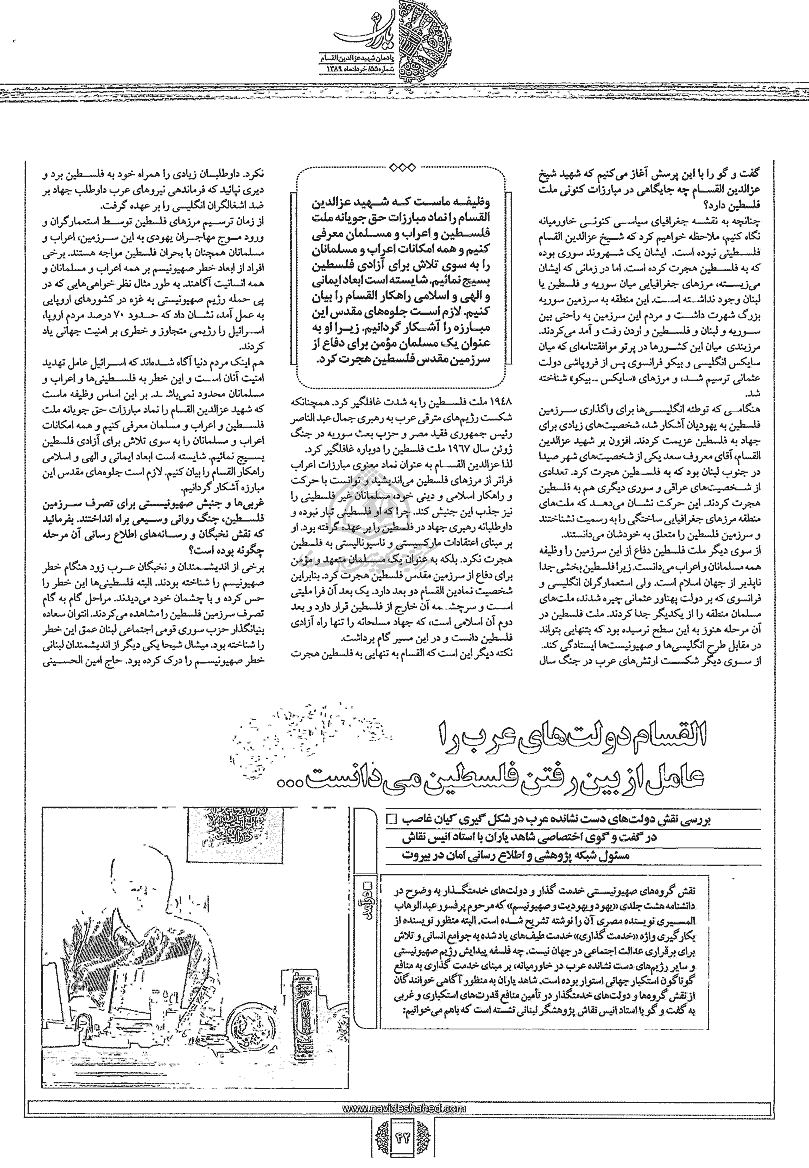 یاران
یادمان شهید عزالدین القسام
شماره ۵۵/ خردادماه ۱۳۸۹
گفت و گو را با این پرسش آغاز می‌کنیم که شهید شیخ
عزالدین القسام چه جایگاهی در مبارزات کنونی ملت
فلسطین دارد؟
چنانچه به نقشه جغرافیای سیاسی کنونی خاورمیانه
نگاه کنیم، ملاحظه خواهیم کرد که شیخ عزالدین القسام
فلسطینی نبوده است. ایشان یک شهروند سوری بوده
که به فلسطین هجرت کرده است. اما در زمانی که ایشان
می‌زیسته، مرزهای جغرافیایی میان سوریه و فلسطین یا
لبنان وجود نداشته است. این منطقه به سرزمین سوریه
بزرگ شهرت داشت و مردم این سرزمین به راحتی بین
سوریه و لبنان و فلسطین و اردن رفت و آمد می‌کردند.
مرزبندی میان این کشورها در پرتو موافقتنامه‌ای که میان
سایکس انگلیسی و بیکو فرانسوی پس از فروپاشی دولت
عثمانی ترسیم شد، و مرزهای «سایکس ـ بیکو» شناخته
شد.
هنگامی که توطئه انگلیسی‌ها برای واگذاری سرزمین
فلسطین به یهودیان آشکار شد، شخصیت‌های زیادی برای
جهاد به فلسطین عزیمت کردند. افزون بر شهید عزالدین
القسام، آقای معروف سعد یکی از شخصیت‌های شهر صیدا
در جنوب لبنان بود که به فلسطین هجرت کرد. تعدادی
از شخصیت‌های عراقی و سوری دیگری هم به فلسطین
هجرت کردند. این حرکت نشان می‌دهد که ملت‌های
منطقه مرزهای جغرافیایی ساختگی را به رسمیت نشناختند
و سرزمین فلسطین را متعلق به خودشان می‌دانستند.
از سوی دیگر ملت فلسطین دفاع از این سرزمین را وظیفه
همه مسلمانان و اعراب می‌دانست. زیرا فلسطین بخشی جدا
ناپذیر از جهان اسلام است. ولی استعمارگران انگلیسی و
فرانسوی که بر دولت پهناور عثمانی چیره شدند، ملت‌های
مسلمان منطقه را از یکدیگر جدا کردند. ملت فلسطین در
آن مرحله هنوز به این سطح نرسیده بود که بتنهایی بتواند
در مقابل طرح انگلیسی‌ها و صهیونیست‌ها ایستادگی کند.
از سوی دیگر شکست ارتش‌های عرب در جنگ سال
وظیفه ماست که شهید عزالدین
القسام را نماد مبارزات حق جویانه ملت
فلسطین و اعراب و مسلمان معرفی
کنیم و همه امکانات اعراب و مسلمانان
را به سوی تلاش برای آزادی فلسطین
بسیج نمائیم. شایسته است ابعاد ایمانی
و الهی و اسلامی راهکار القسام را بیان
کنیم. لازم است جلوه‌های مقدس این
مبارزه را آشکار گردانیم. زیرا او به
عنوان یک مسلمان مؤمن برای دفاع از
سرزمین مقدس فلسطین هجرت کرد.
۱۹۴۸ ملت فلسطین را به شدت غافلگیر کرد. همچنانکه
شکست رژیم‌های مترقی عرب به رهبری جمال عبد الناصر
رئیس جمهوری فقید مصر و حزب بعث سوریه در جنگ
ژوئن سال ۱۹۶۷ ملت فلسطین را دوباره غافلگیر کرد.
لذا عزالدین القسام به عنوان نماد معنوی مبارزات اعراب
فراتر از مرزهای فلسطین می‌اندیشید و توانست با حرکت
و راهکار اسلامی و دینی خود مسلمانان غیر فلسطینی را
نیز جذب این جنبش کند. چرا که او فلسطینی تبار نبوده و
داوطلبانه رهبری جهاد در فلسطین را بر عهده گرفته بود. او
بر مبنای اعتقادات مارکسیستی و ناسیونالیستی به فلسطین
هجرت نکرد. بلکه به عنوان یک مسلمان متعهد و مؤمن
برای دفاع از سرزمین مقدس فلسطین هجرت کرد. بنابراین
شخصیت نمادین القسام دو بعد دارد. یک بعد آن فرا ملیتی
است و سرچشمه آن خارج از فلسطین قرار دارد و بعد
دوم آن اسلامی است، که جهاد مسلحانه را تنها راه آزادی
فلسطین دانست و در این مسیر گام برداشت.
نکته دیگر این است که القسام به تنهایی به فلسطین هجرت
نکرد. داوطلبان زیادی را همراه خود به فلسطین برد و
دیری نپائید که فرماندهی نیروهای عرب داوطلب جهاد بر
ضد اشغالگران انگلیسی را بر عهده گرفت.
از زمان ترسیم مرزهای فلسطین توسط استعمارگران و
ورود موج مهاجران یهودی به این سرزمین، اعراب و
مسلمانان همچنان با بحران فلسطین مواجه هستند. برخی
افراد از ابعاد خطر صهیونیسم بر همه اعراب و مسلمانان و
همه انسانیت آگاهند. به طور مثال نظر خواهی‌هایی که در
پی حمله رژیم صهیونیستی به غزه در کشورهای اروپایی
به عمل آمد، نشان داد که حدود ۷۰ درصد مردم اروپا،
اسرائیل را رژیمی متجاوز و خطری بر امنیت جهانی یاد
کردند.
هم اینک مردم دنیا آگاه شده‌اند که اسرائیل عامل تهدید
امنیت آنان است و این خطر به فلسطینی‌ها و اعراب و
مسلمانان محدود نمی‌باشد. بر این اساس وظیفه ماست
که شهید عزالدین القسام را نماد مبارزات حق جویانه ملت
فلسطین و اعراب و مسلمان معرفی کنیم و همه امکانات
اعراب و مسلمانان را به سوی تلاش برای آزادی فلسطین
بسیج نمائیم. شایسته است ابعاد ایمانی و الهی و اسلامی
راهکار القسام را بیان کنیم. لازم است جلوه‌های مقدس این
مبارزه آشکار گردانیم.
غربی‌ها و جنبش صهیونیستی برای تصرف سرزمین
فلسطین، جنگ روانی وسیعی براه انداختند. بفرمائید
که نقش نخبگان و رسانه‌های اطلاع رسانی آن مرحله
چگونه بوده است؟
برخی از اندیشمندان و نخبگان عرب زود هنگام خطر
صهیونیسم را شناخته بودند. البته فلسطینی‌ها این خطر را
حس کرده و با چشمان خود می‌دیدند. مراحل گام به گام
تصرف سرزمین فلسطین را مشاهده می‌کردند. انتوان سعاده
بنیانگذار حزب سوری قومی اجتماعی لبنان عمق این خطر
را شناخته بود. میشال شیحا یکی دیگر از اندیشمندان لبنانی
خطر صهیونیسم را درک کرده بود. حاج امین الحسینی
القسام دولت‌های عرب را
عامل از بین رفتن فلسطین می‌دانست...
بررسی نقش دولت‌های دست نشانده عرب در شکل گیری کیان غاصب
در گفت و گوی اختصاصی شاهد یاران با استاد انیس نقاش
مسئول شبکه پژوهشی و اطلاع رسانی امان در بیروت
درآمد
نقش گروه‌های صهیونیستی خدمت گذار و دولت‌های خدمتگذار به وضوح در
دانشنامه هشت جلدی «یهود و یهودیت و صهیونیسم» که مرحوم پرفسور عبدالوهاب
المسیری نویسنده مصری آن را نوشته تشریح شده است. البته منظور نویسنده از
بکارگیری واژه «خدمت گذاری» خدمت طیف‌های یاد شده به جوامع انسانی و تلاش
برای برقراری عدالت اجتماعی در جهان نیست. چه فلسفه پیدایش رژیم صهیونیستی
و سایر رژیم‌های دست نشانده عرب در خاورمیانه، بر مبنای خدمت گذاری به منافع
گوناگون استکبار جهانی استوار بوده است. شاهد یاران به منظور آگاهی خوانندگان
از نقش گروه‌ها و دولت‌های خدمتگذار در تأمین منافع قدرت‌های استکباری و غربی
به گفت و گو با استاد انیس نقاش پژوهشگر لبنانی نشسته است که باهم می‌خوانیم:
www.navideshahed.com
۴۴